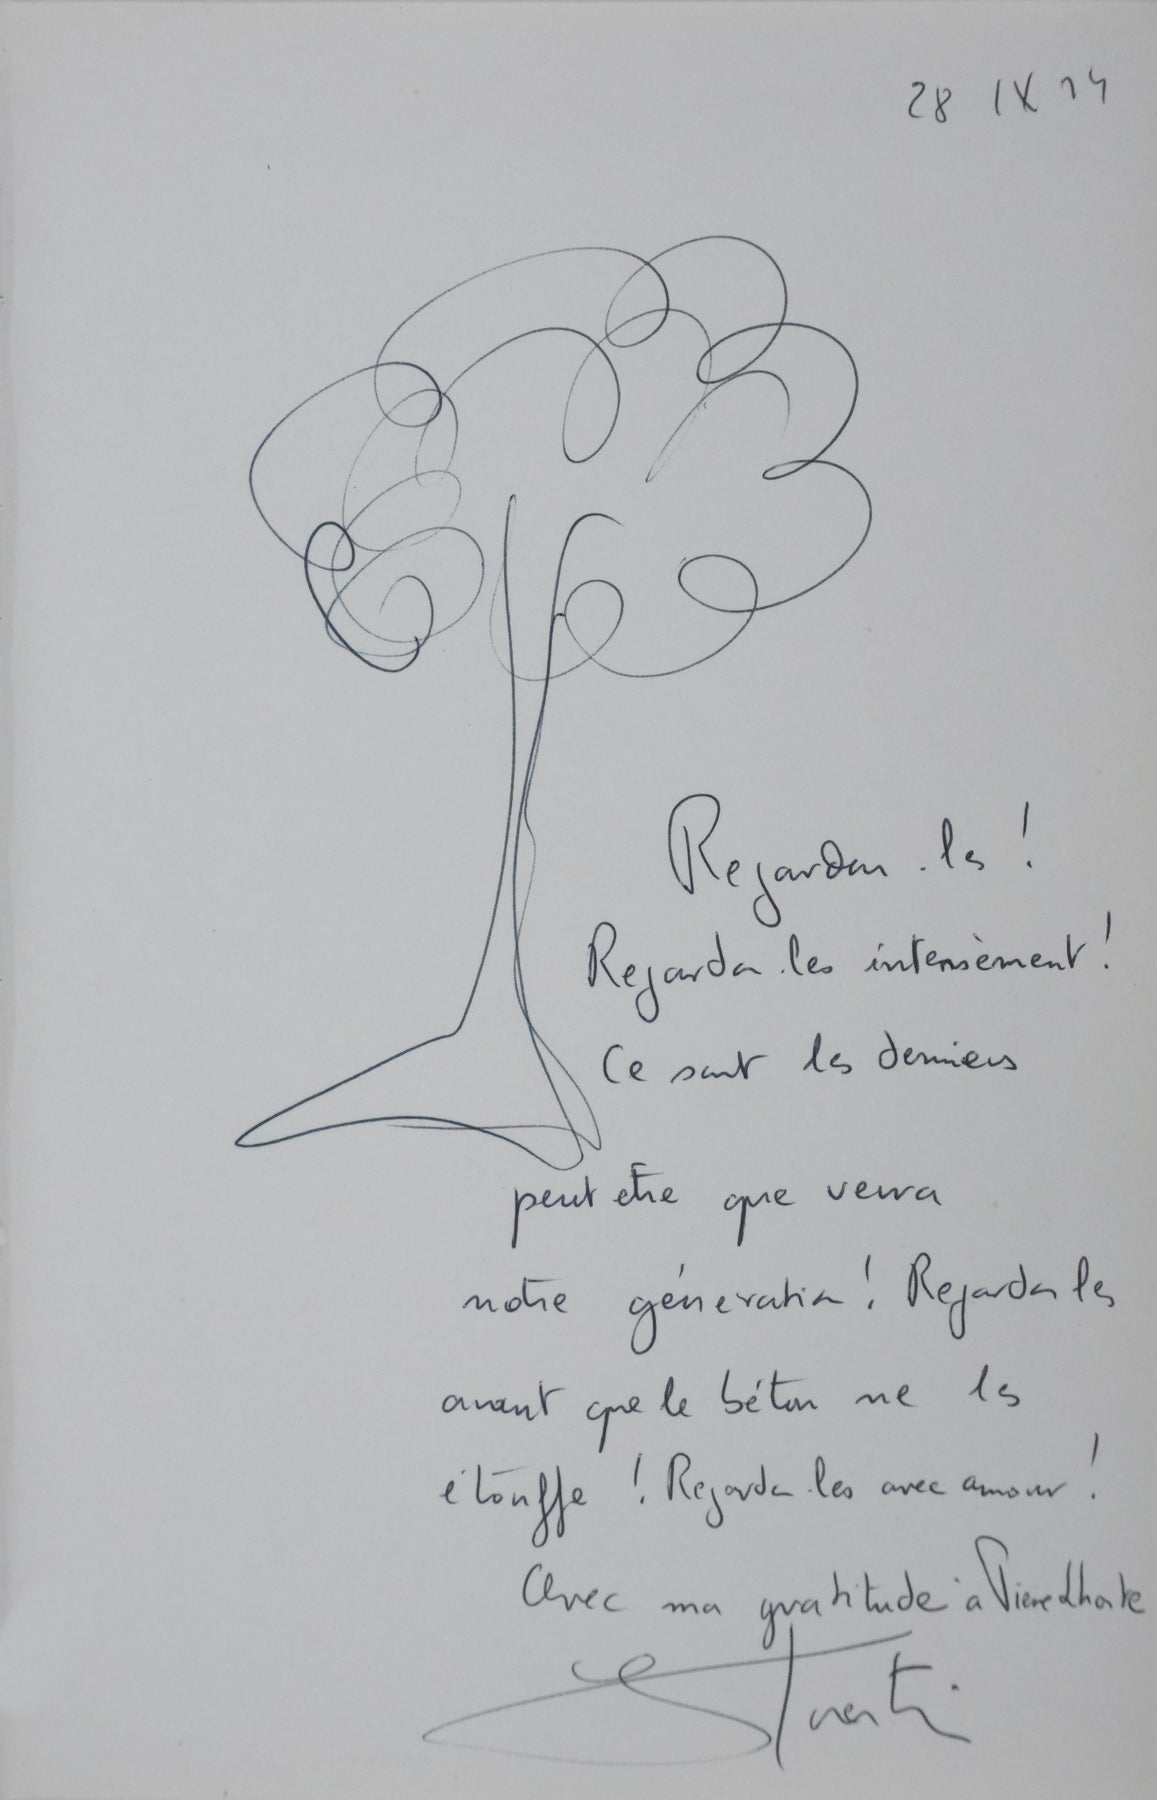 28 IX 74
Regardons-les !
Regardons-les intensèment !
Ce sont les derniers
peut etre que verra
notre génération ! Regardons les
avant que le béton ne les
étouffe ! Regardons-les avec amour !
Avec ma gratitude à Pierre Lhoste